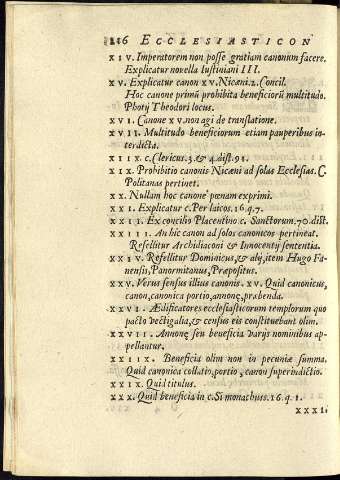 116 ECCLESIASTICON
XIV. Imperatorem non posse gratiam canonum facere.
Explicatur novella Iustiniani III.
XV. Explicatur canon XV. Nicæni. 2. Concil.
Hoc canone primũ prohibita beneficiorũ multitudo.
Photij Theodori locus.
XVI. Canone XV. non agi de translatione.
XVII. Multitudo beneficiorum etiam pauperibus in-
terdicta.
XIIX. c. Clericus. 3. & 4. dist. 91.
XIX. Prohibitio canonis Nicæni ad solas Ecclesias. C.
Politanas pertinet.
XX. Nullam hoc canone pœnam exprimi.
XXI. Explicatur c. Per laicos. 16. q. 7.
XXII. Ex concilio Placentino c. Sanctorum. 70. dist.
XXIII. An hic canon ad solos canonicos pertineat.
Refellitur Archidiaconi & Innocentij sententia.
XXIV. Refellitur Dominicus, & alij, item Hugo Fa-
nensis, Panormitanus, Præpositus.
XXV. Verus sensus illius canonis. XV. Quid canonicus,
canon, canonica portio, annonę, præbenda.
XXVI. Ædificatores ecclesiasticorum templorum quo
pacto vectigalia, & census eis constituebant olim.
XXVII. Annonę seu beneficia varijs nominibus ap-
pellantur.
XXIIX. Beneficia olim non in pecuniæ summa.
Quid canonica collatio, portio, canon superindictio.
XXIX. Quid titulus.
XXX. Quid beneficia in c. Si monachus. 16. q. 1.
XXXI.